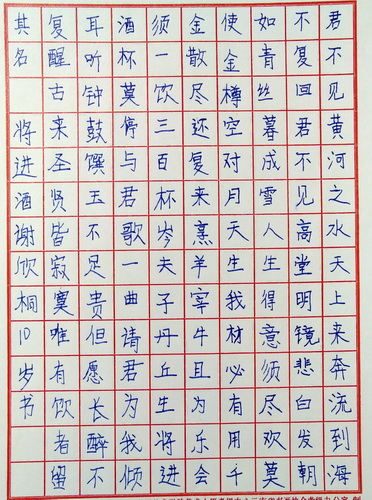 君不见黄河之水天上来奔流到海
不复回君不见高堂明镜悲白发朝
如青丝暮成雪人生得意须尽欢莫
使金樽空对月天生我材必有用千
金散尽还复来烹羊宰牛且为乐会
须一饮三百杯岑夫子丹丘生将进
酒杯莫停与君歌一曲请君为我倾
耳听钟鼓馔玉不足贵但愿长醉不
复醒古来圣贤皆寂寞唯有饮者留
其名 将进酒谢欣桐10岁书